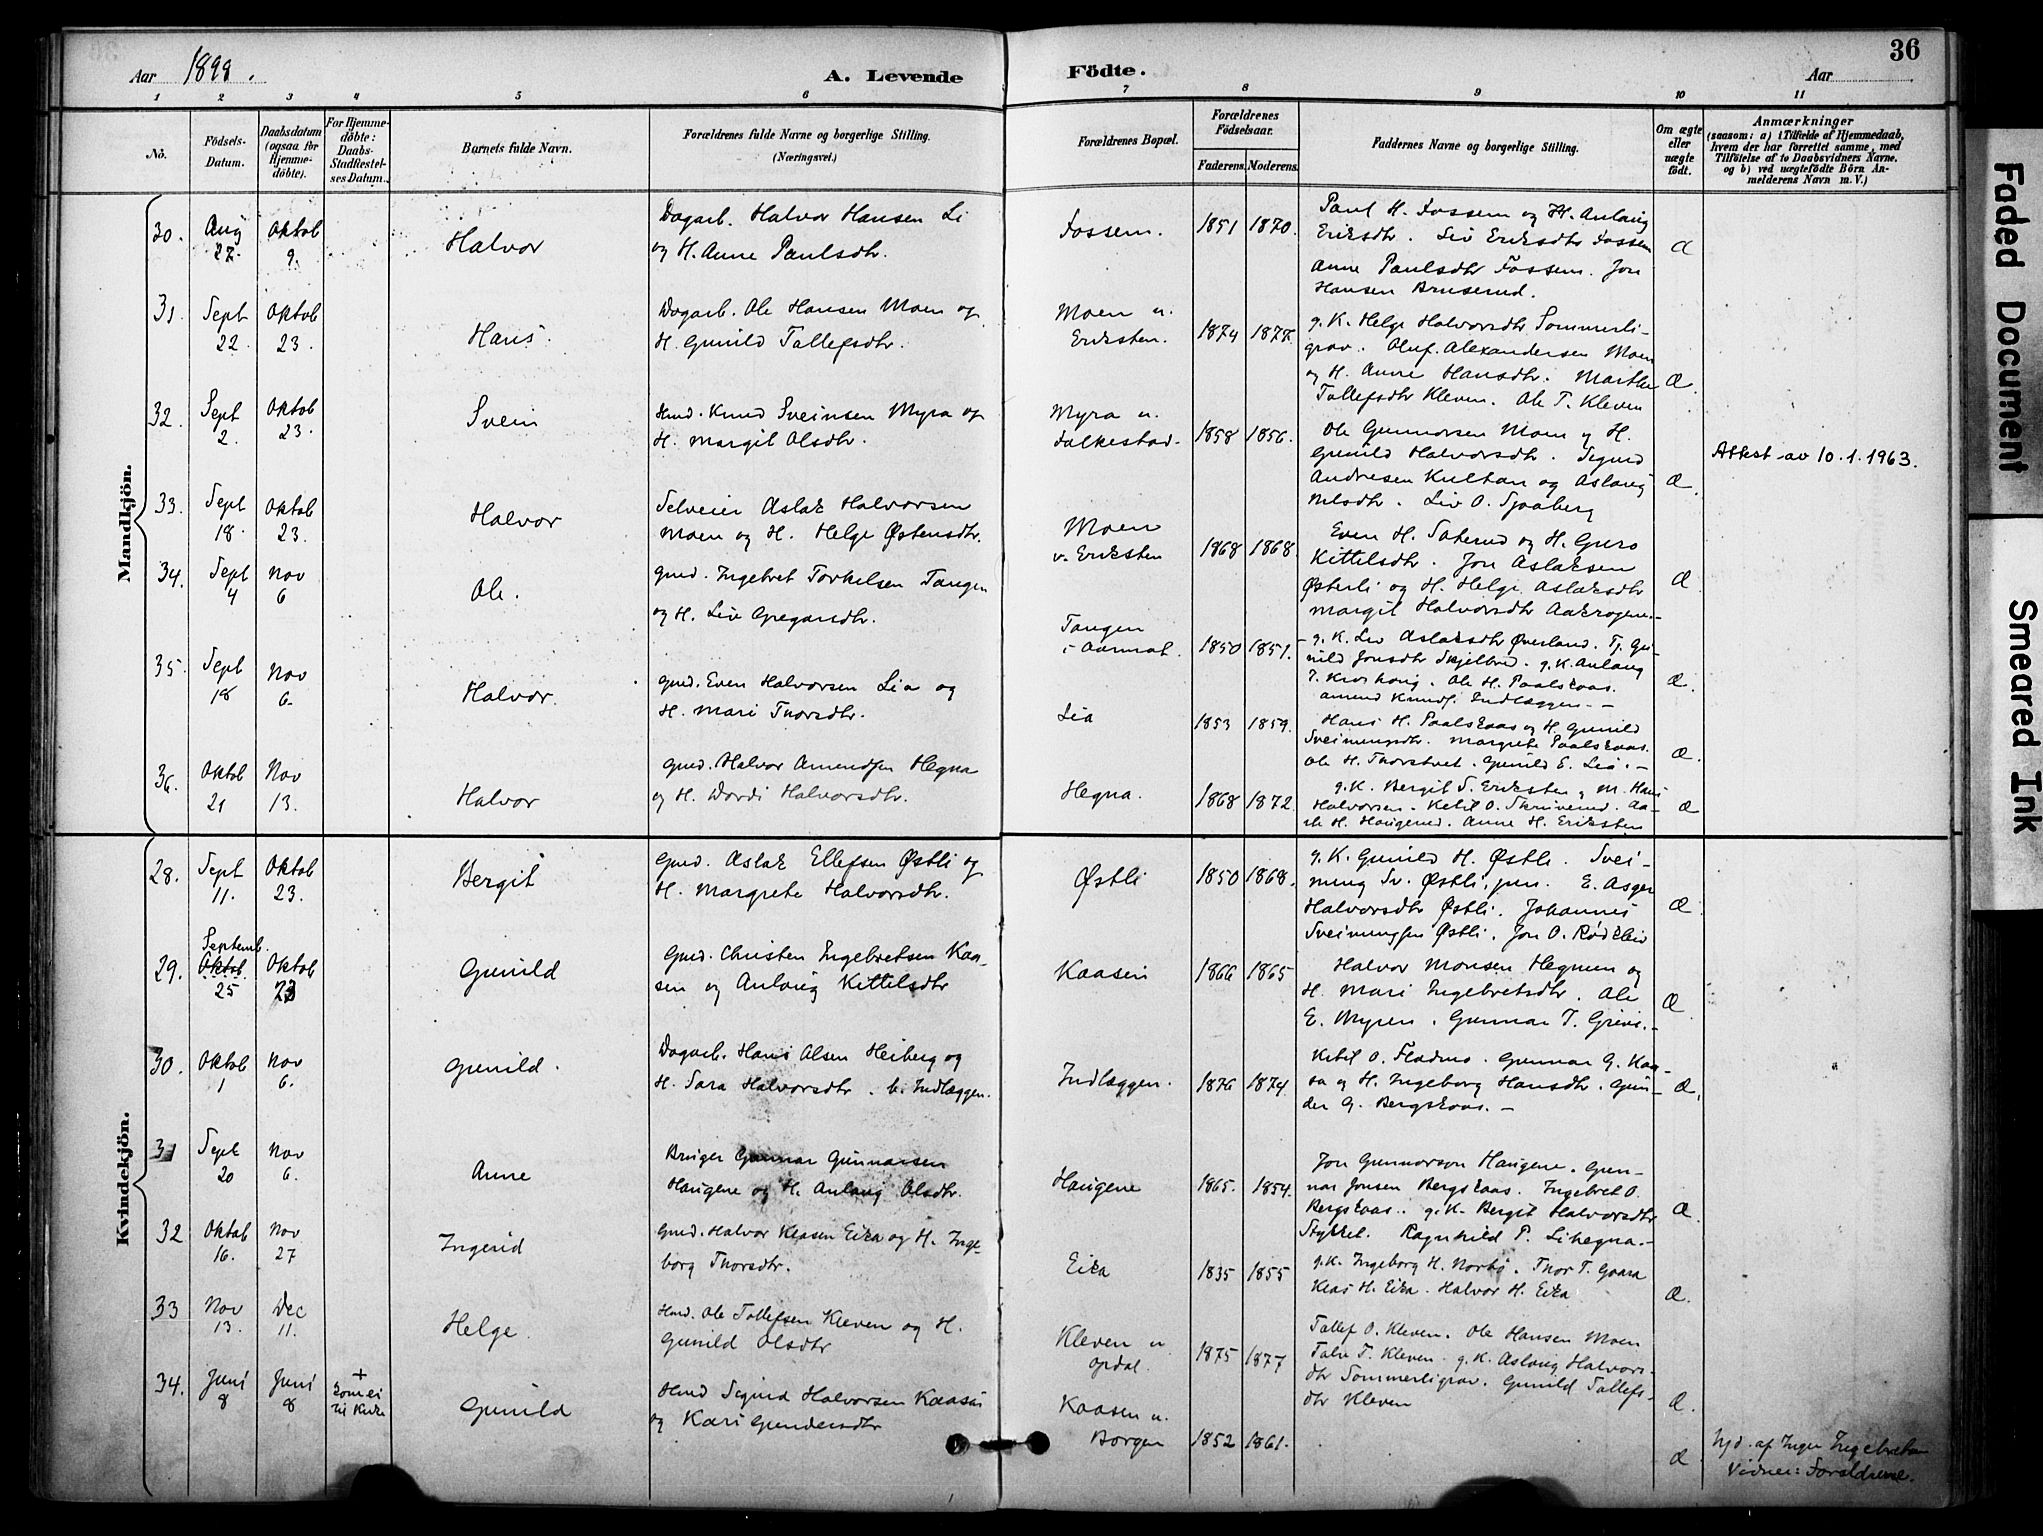 36
Aar 1899.
A. Levende Födte.
Aar
1 2 3 4 5 6 7 8 9 10 11
No.
Födsels-Datum.
Daabsdatum (ogsaa for Hjemme-döbte).
For Hjemme-döbte: Daabs-Stadfæstel-ses Datum.
Barnets fulde Navn.
Forældrenes fulde Navne og borgerlige Stilling.
(Næringsvei.)
Forældrenes Bopæl.
Forældrenes Födselsaar.
Faderens. Moderens.
Faddernes Navne og borgerlige Stilling.
Om ægte eller uægte födt.
Anmærkninger
(saasom: a) i Tilfælde af Hjemmedaab,
hvem der har forrettet samme, med
Tilföielse af to Daabsvidners Navne.
og b) ved uægtefödte Börn An-
melderens Navn m. V.)
Mandkjön.
30. Aug 27. Oktob 9. Halvor
Dagarb. Halvor Hansen Li
og H. Anne Paulsdtr.
Fossem. 1851 1870.
Paul H. Fossem og H. Anlaug
Eriksdtr. Liv Eriksdtr Fossem
Anne Paulsdtr Fossem. Jon
Hansen Bruserud.
31. Sept 22. Oktob 23. Hans.
Dagarb. Ole Hansen Moen og
H. Gunild Tollefsdtr.
Moen u. Eriksten. 1874 1877.
g. K. Helge Halvorsdtr Sommerli-
grav. Oluf Alexandersen Moen
og H. Anne Hansdtr. Marthe
Tollefsdtr Kleven. Ole T. Kleven
Æ.
32. Sept 2. Oktob 23. Svein
Hmd. Knud Sveinsen Myra og
H. Margit Olsdtr.
Myra u. Falkestad. 1858 1856.
Ole Gunnarsen Moen og H.
Gunild Halvorsdtr. Sigurd
Andresen Kultan og Aslaug
Nilsdtr. Liv O. Sjaaberg
Æ.
Attest av 10.1.1963.
33. Sept 18. Oktob 23. Halvor
Selveier Aslak Halvorsen
Moen og H. Helge Østensdtr.
Moen v. Eriksten 1868 1868.
Even H. Saterud og H. Guro
Kittelsdtr. Jon Aslaksen
Østerli og H. Helge Aslaksdtr
Margit Halvorsdtr Aakrogen.
Æ
34. Sept 4 Nov 6 Ole.
Gmd. Ingebret Torkelsen Tangen
og H. Liv Gregarsdtr.
Tangen i Aarmot. 1850 1851.
g. K. Liv Aslaksdtr Øverland. Tj. Gu-
nild Jonsdtr Skjelbred. g. K. Anlaug
Ole H. Paalskaas.
Æ.
35. Sept 18 Nov 6. Halvor.
Gmd. Even Halvorsen Lia og
H. Mari Thorsdtr.
Lia 1853 1859.
Hans H. Paalskaas og H. Gunild
Sveinungsdtr. Margrete Paalskaas.
Ole H. Thorstvet. Gunild E. Lia.
Æ.
36. Oktob 21 Nov 13. Halvor
Gmd. Halvor Amundsen Hegna
og H. Dordi Halvorsdtr.
Hegna. 1868 1872.
g. K. Bergit S. Eriksten og M. Hans
Halvorsen. Ketil O. Skriverud. Aa-
se H. Haugerud. Anne H. Eriksten
Æ
Kvindekjön.
28. Sept 11. Oktob 23. Bergit
Gmd. Aslak Ellefsen Østli og
H. Margrete Halvorsdtr.
Østli 1850 1868.
g. K. Gunild H. Østli. Svei-
nung Sv. Østli, jun. E. Asger
Halvorsdtr Østli. Johannes
Sveinungsen Østli. Jon O. Rødkleiv
Æ
29. Septemb. Oktob. 25 Oktob 23 Gunild
Gmd. Christen Ingebretsen Kaa-
sen og Anlaug Kittelsdtr
Kaasen 1866 1865
Halvor Monsen Hegnun og
H. Mari Ingebretsdtr. Ole
E. Myren. Gunnar T. Grivi.
Æ.
30. Oktob 1 Nov 6. Gunild.
Dagarb. Hans Olsen Heiberg og
H. Sara Halvorsdtr. b. Indlæggen.
Indlæggen. 1876 1874.
Ketil O. Fladmo. Gunnar G. Kaa-
sa og H. Ingeborg Hansdtr. Gun-
der G. Bergskaas.
Æ.
31 Sept 20 Nov 6. Anne
Bruger Gunnar Gunnarsen
Haugene og H. Anlaug Olsdtr.
Haugene 1865. 1854.
Jon Gunnarson Haugene. Gun-
nar Jonsen Bergskaas. Ingebret O.
Bergskaas. g. K. Bergit Halvorsdtr
Stykket. Ragnhild P. Lihegna.
Æ.
32 Oktob 16. Nov 27 Ingerid
Gmd. Halvor Klasen Eika og H. Inge-
borg Thorsdtr.
Eika 1835 1855
g. K. Ingeborg H. Norbø. Thor T. Gaara
Klas H. Eika. Halvor H. Eika
Æ.
33 Nov 13. Dec 11. Helge
Hmd. Ole Tollefsen Kleven og H.
Gunild Olsdtr
Kleven u Opdal. 1875 1877
Tollef O. Kleven. Ole Hansen Moen
Talv T. Kleven. g. K. Aslaug Halvors-
dtr Sommerligrav. Gunild Tollefs-
dtr Kleven
Æ.
34. Juni 8 Juni 8 + kom ei til Kirke Gunild
Hmd Sigurd Halvorsen Kaasen
og Kari Gundersdtr
Kaasen u. Borgen 1852 1861.
Æ
Hjd. af Inger Ingebretsen
Vidner: Forældrene.
Faded Document
Smeared Ink